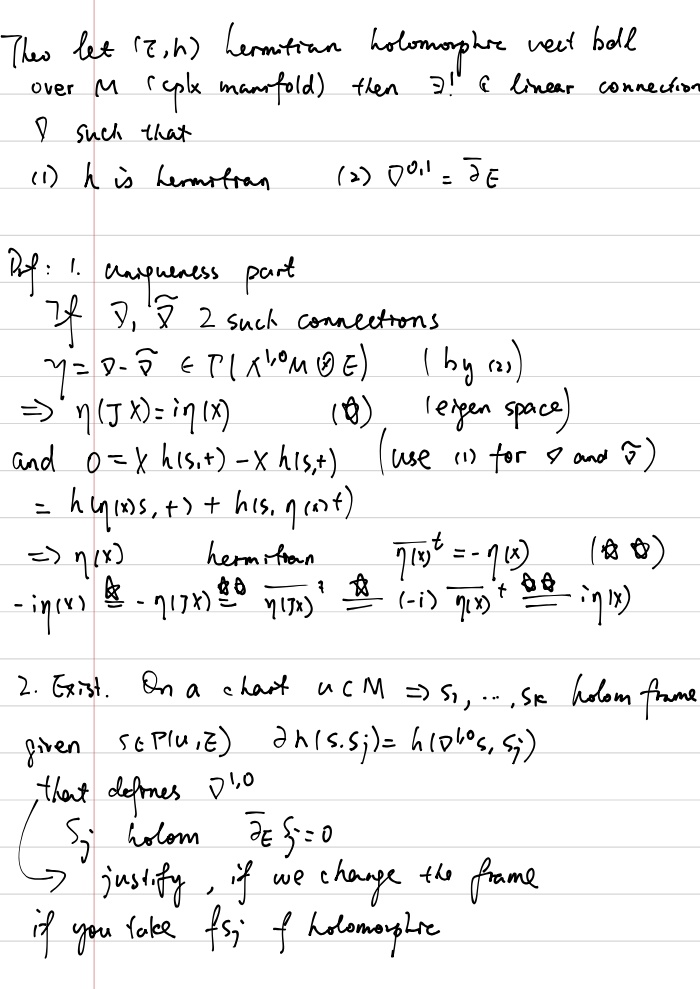 Theo let (E,h) hermitian holomorphic vect bdll
over M (cplx manifold) then ∃! ℂ linear connection
∇ such that
(1) h is hermitian (2) ∇^{0,1} = \bar{∂}_E
Prf: 1. uniqueness part
If ∇, \tilde{∇} 2 such connections
η = ∇ - \tilde{∇} ∈ Γ(Λ^{1,0}M ⊗ E) (by (2))
⇒ η(JX) = iη(X) (☆) (eigen space)
and 0 = X h(s,t) - X h(s,t) (use (1) for ∇ and \tilde{∇})
= h(η(x)s, t) + h(s, η(x)t)
⇒ η(X) hermitian \overline{η(x)}^t = -η(x) (☆☆)
-iη(x) \overset{☆}{=} -η(JX) \overset{☆☆}{=} \overline{η(JX)}^t \overset{☆}{=} (-i) \overline{η(x)}^t \overset{☆☆}{=} iη(x)
2. Exist. On a chart U ⊂ M ⇒ s_1, ..., s_k holom frame
given s ∈ Γ(U, E) ∂h(s.s_j) = h(∇^{1,0}s, s_j)
that defines ∇^{1,0}
s_j holom \bar{∂}_E s_j = 0
→ justify, if we change the frame
if you take fs_j f holomorphic